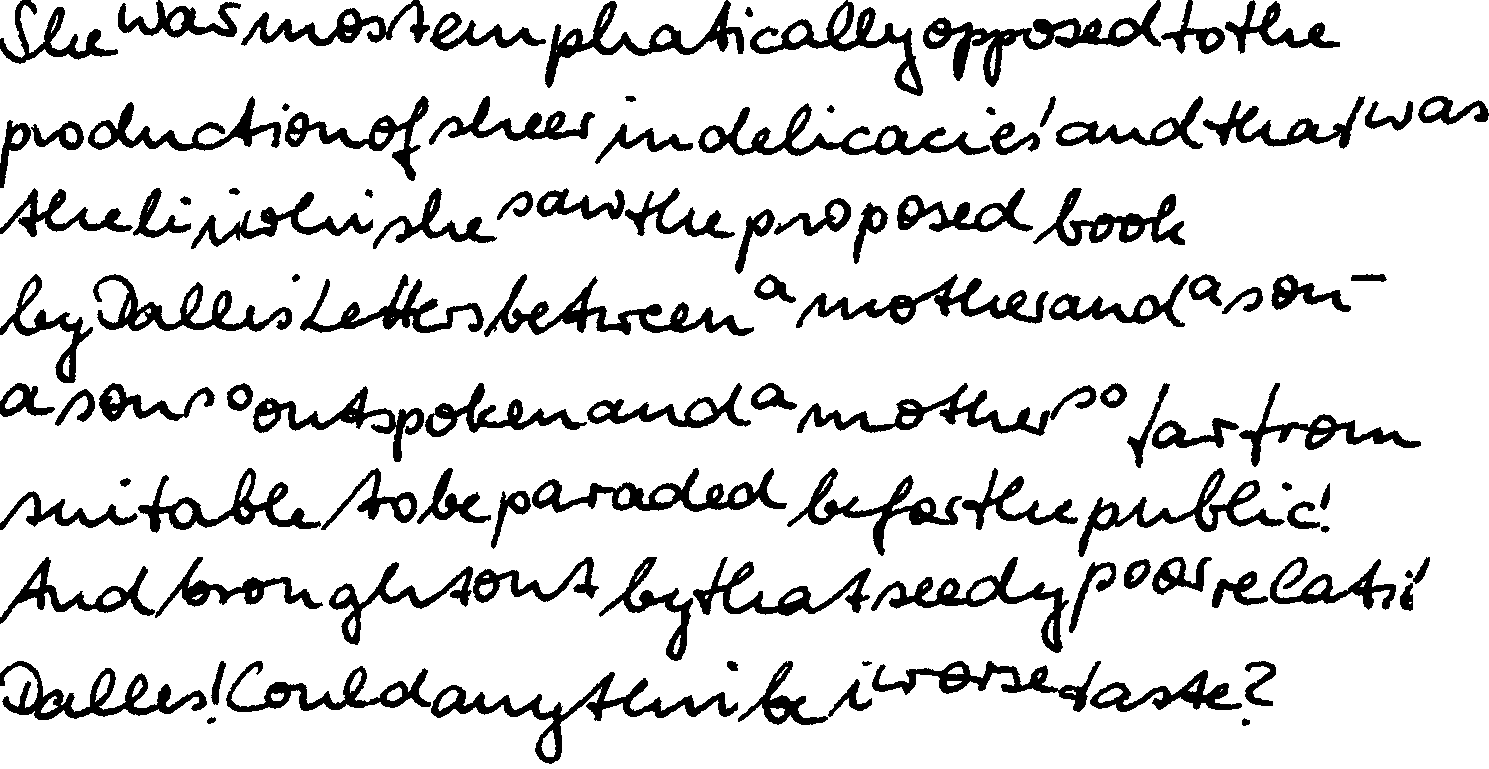 She was most emphatically opposed to the
production of sheer indelicacies' and that was
the li in whi she saw the proposed book
by Dalles' Letters between a mother and a son -
a son so outspoken and a mother so far from
suitable to be paraded befor the public!
And brought out by that seedy poor relati
Dalles! Could anythin be i worse taste?